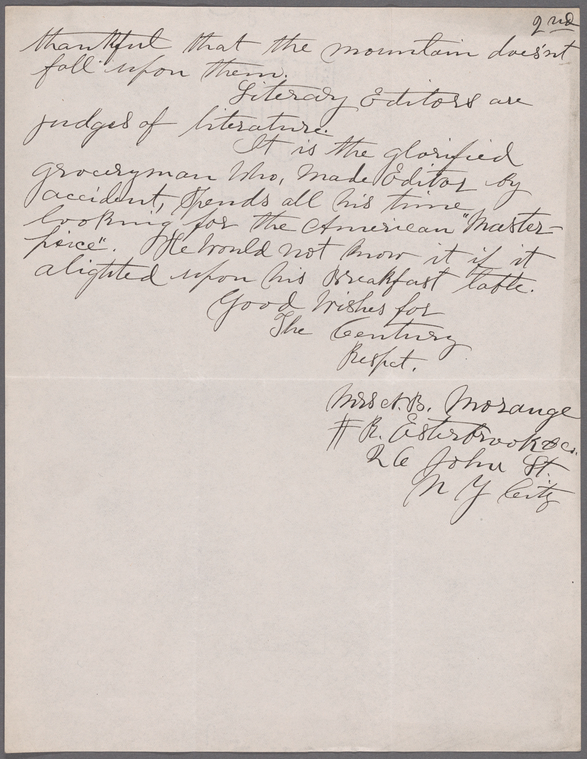 2nd
thankful that the mountain doesn't
fall upon them.
Literary Editors are
judges of literature.
It is the glorified
groceryman who, made Editor by
accident, spends all his time
looking for the American "Master-
piece". He would not know it if it
alighted upon his Breakfast table.
Good Wishes for
The Century
Respct.
Mrs. B. Morange
# R. Esterbrook & Co.
26 John St.
N Y City